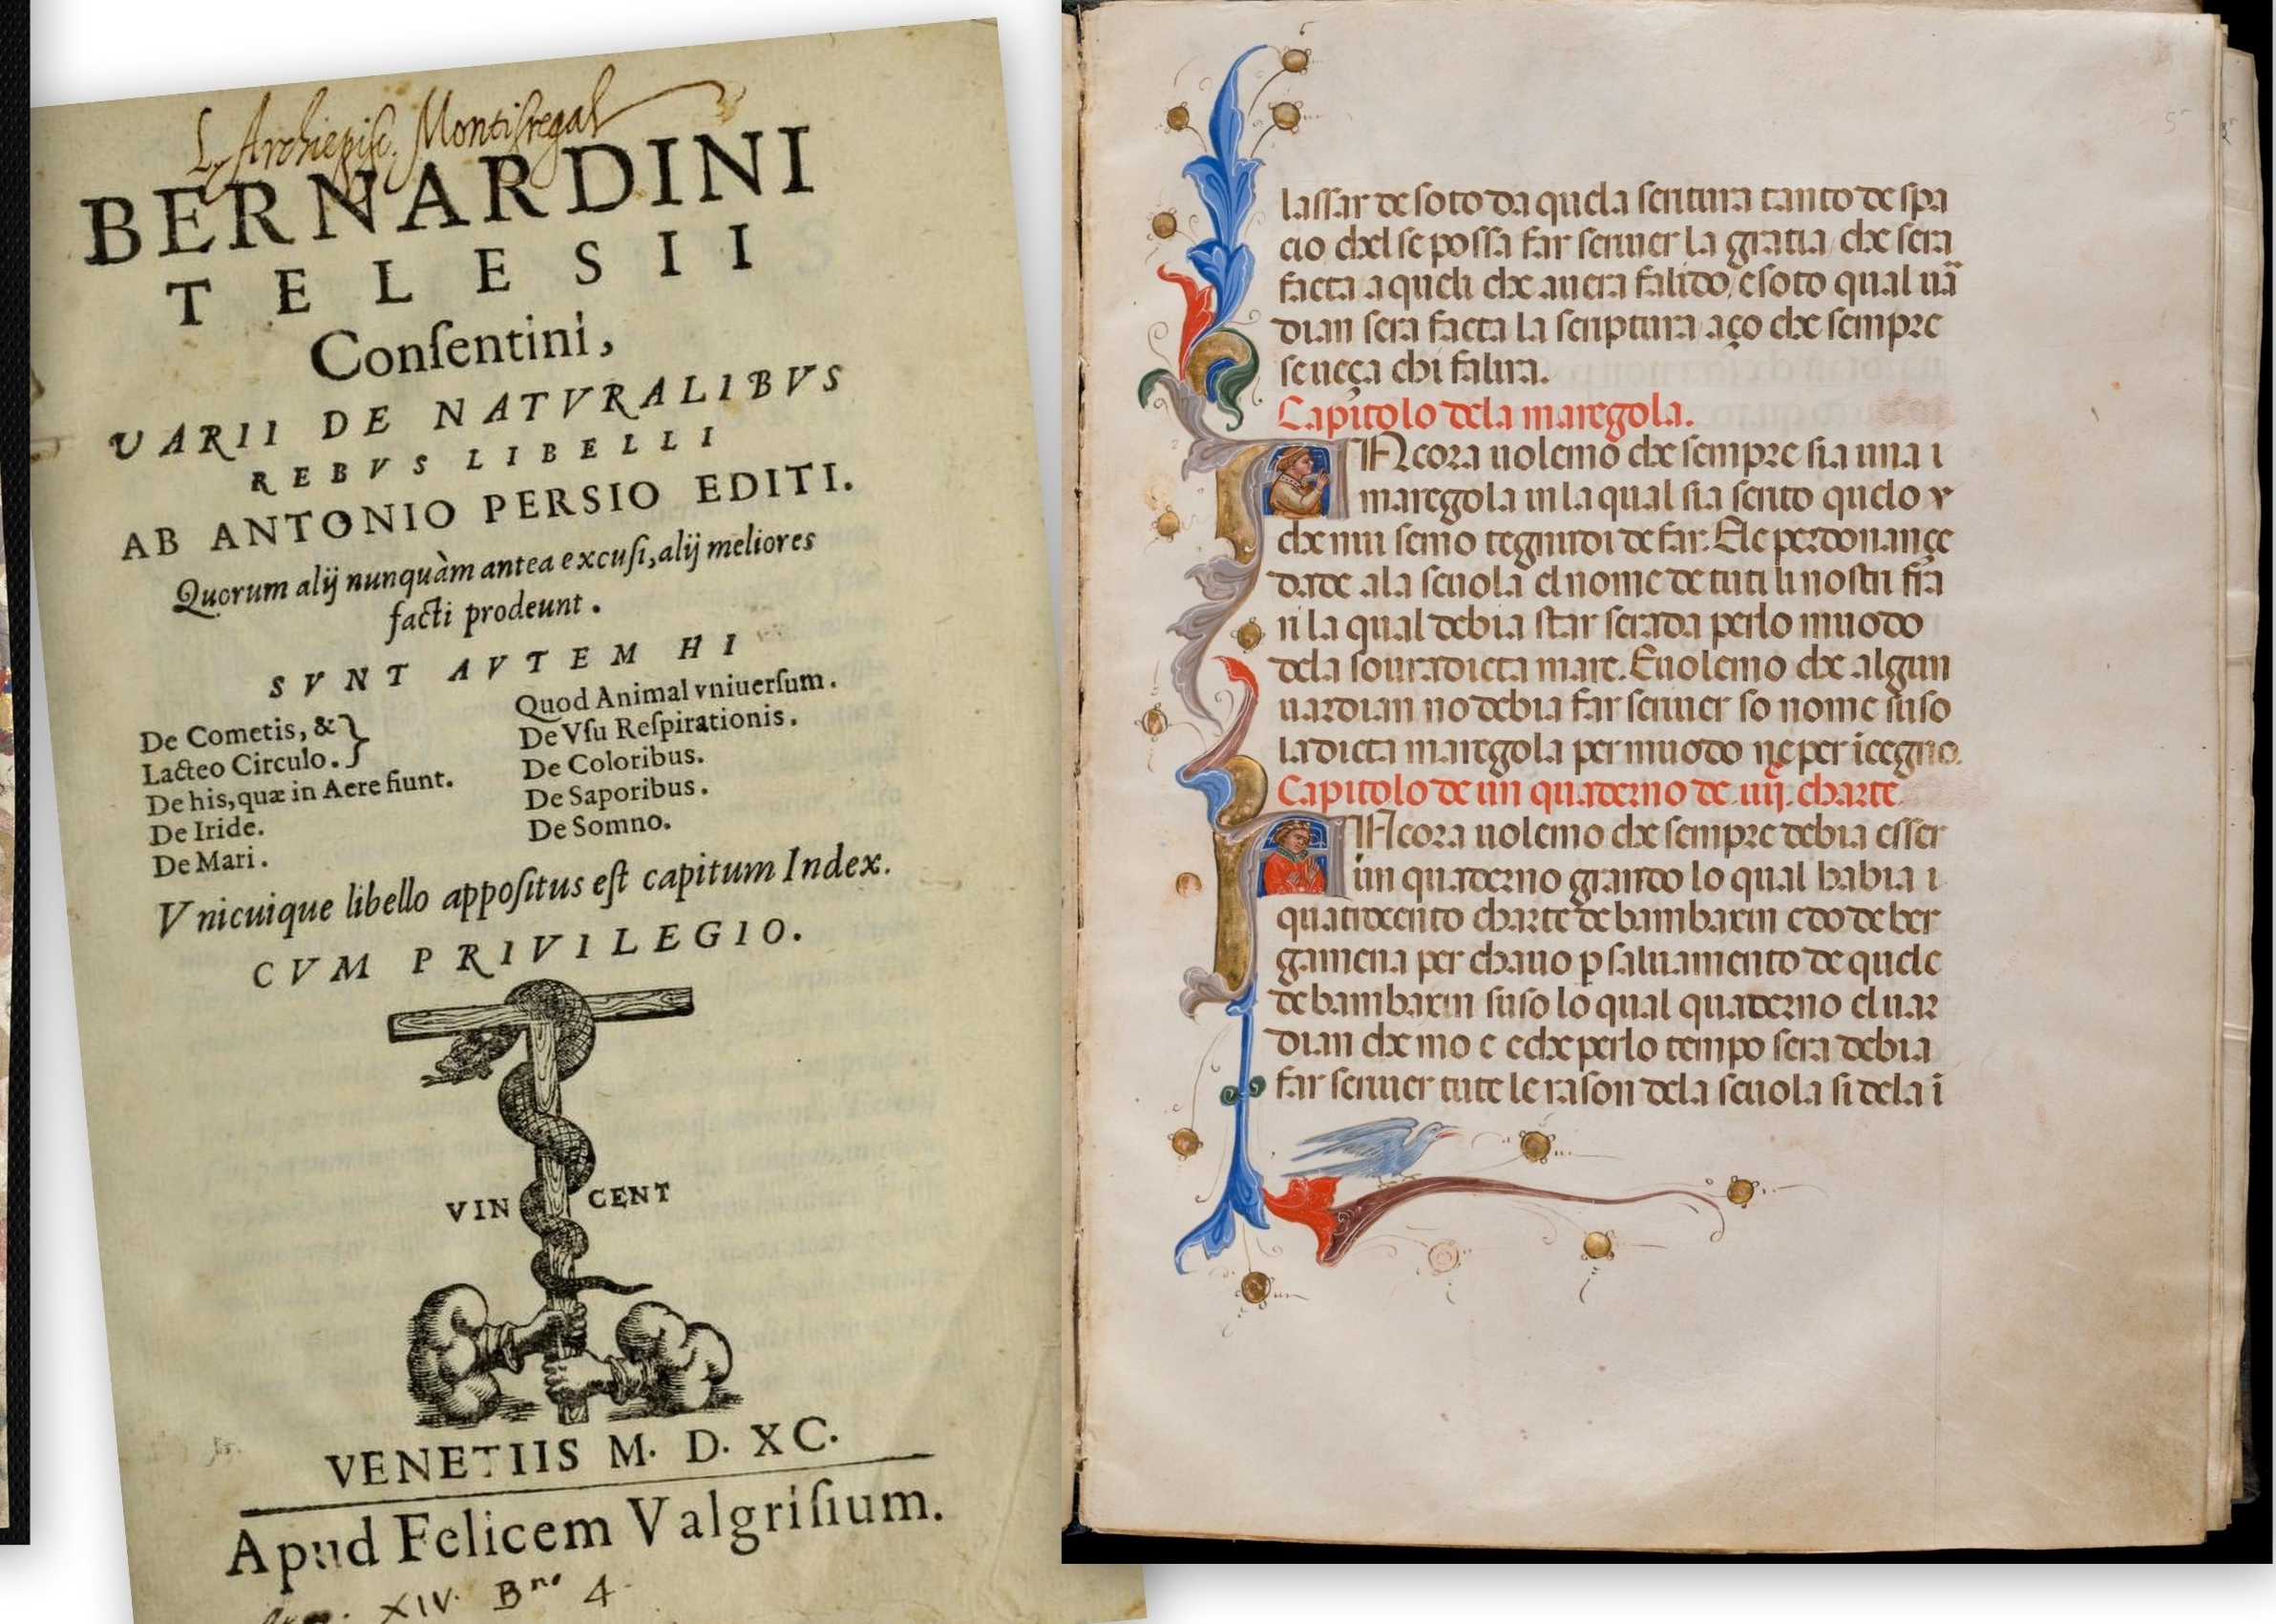 L. Archiepisc. Montisregal
BERNARDINI
TELESII
Conſentini,
VARII DE NATVRALIBVS
REBVS LIBELLI
AB ANTONIO PERSIO EDITI.
Quorum alij nunquàm antea excuſi, alij meliores
facti prodeunt.
SVNT AVTEM HI
De Cometis, &
Lacteo Circulo.
De his, quæ in Aere fiunt.
De Iride.
De Mari.
Quod Animal vniuerſum.
De Vſu Reſpirationis.
De Coloribus.
De Saporibus.
De Somno.
Vnicuique libello appoſitus eſt capitum Index.
CVM PRIVILEGIO.
VIN CENT
VENETIIS M. D. XC.
Apud Felicem Valgriſium.
XIV. B.no 4
laſſar de ſoto da quela ſcritura tanto de ſpa
cio chel ſe poſſa far ſcriuer la gratia che ſera
facta a queli che auera falido, e ſoto qual uā
dian ſera facta la ſcriptura aço che ſempre
ſe ueça chi falira.
Capitolo dela maregola.
ANcora uolemo che ſempre ſia una
maregola in la qual ſia ſcrito quelo
che nui ſemo tegnudi de far. E le perdonançe
dade ala ſcuola el nome de tuti li noſtri fra
ri la qual debia ſtar ſerada perlo muodo
dela ſouradicta mare. E uolemo che algun
uardian no debia far ſcriuer ſo nome ſuſo
la dicta maregola per muodo ne per īcegno.
Capitolo de un quaderno de .iiij. charte
ANcora uolemo che ſempre debia eſſer
un quaderno grando lo qual habia
quatrocento charte de bambaxin e do de ber
gamena per chauo p ſaluamento de quele
de bambaxin ſuſo lo qual quaderno el uar
dian che mo e e che perlo tempo ſera debia
far ſcriuer tute le raſon dela ſcuola ſi dela
5